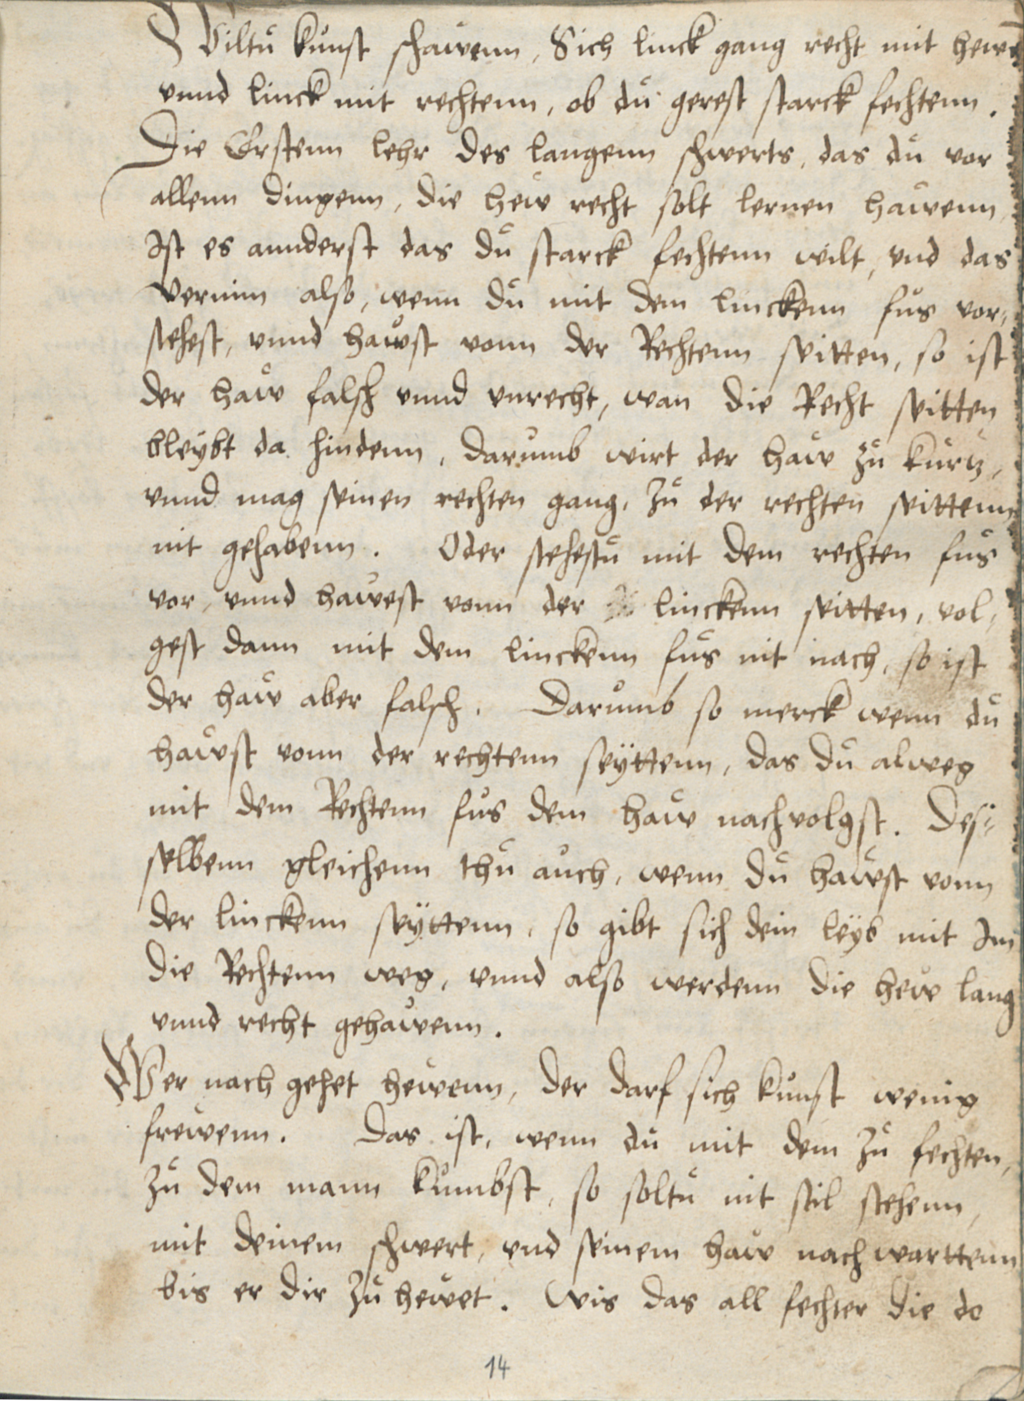 Wiltu kunst schawenn, Sich linck gang recht mit hewe
vnnd linck mit rechtenn, ob du gerest starck fechtenn.
Die Erstenn lehr des langenn schwerts, das du vor
allenn dingenn, die hew recht solt lernen hawenn
Ist es annderst das du starck fechtenn wilt, vnd das
vernim also, wenn du mit dem linckenn fus vor,
stehest, vnnd hawst vonn der Rechtenn seitten, so ist
der haw falsch vnnd vnrecht, wan die Recht seitten
bleybt da hindenn, darumb wirt der haw zu kurtz,
vnnd mag seinen rechten gang, zu der rechten seittenn
nit gehabenn. Oder stehestu mit dem rechten fus
vor, vnnd hawest vonn der linckenn seitten, vol,
gest dann mit dem linckenn fus nit nach, so ist
der haw aber falsch. Darumb so merck wenn du
hawst vonn der rechtenn seÿttenn, das du alweg
mit dem Rechtenn fus dem haw nachvolgst. Des,
selbenn gleichenn thu auch, wenn du hawst vonn
der linckenn seÿttenn, so gibt sich dein leÿb mit Im
die Rechtenn weg, vnnd also werdenn die hew lang
vnnd recht gehawenn.
Wer nach gehet hewenn, der darf sich kunst wenig
frewenn. Das ist, wenn du mit dem zu fechten,
zu dem mann kumbst, so soltu nit stil stehenn,
mit deinem schwert, vnd seinem haw nach warttenn
bis er dir zu hewet. Wis das all fechter die do
14